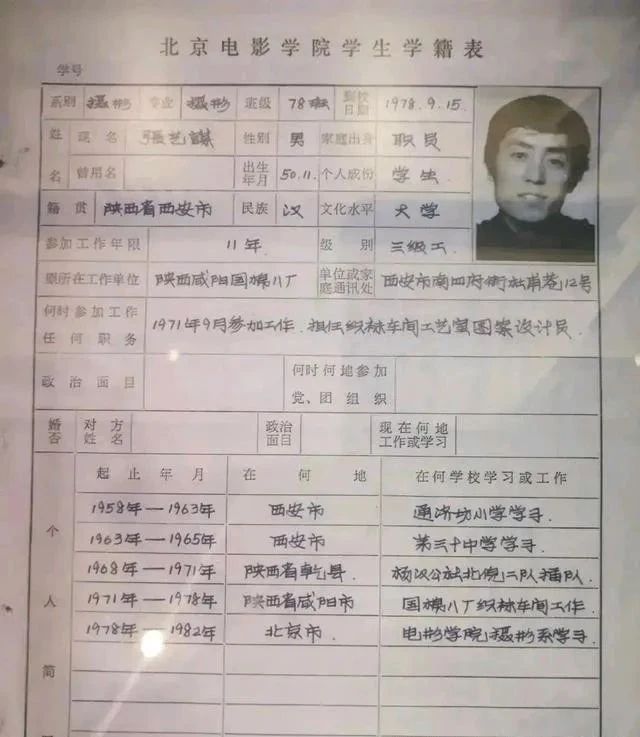 北京电影学院学生学籍表
学号
系别 摄影 专业 摄影 班级 78班 到校日期 1978.9.15.
姓名 现名 張艺謀 性别 男 家庭出身 职员
曾用名 出生年月 50.11. 个人成份 学生
籍贯 陕西省西安市 民族 汉 文化水平 大学
参加工作年限 11年 级别 三级工
原所在工作单位 陕西咸阳国棉八厂 单位或家庭通讯处 西安市南四府街杜甫巷12号
何时参加工作任何职务 1971年9月参加工作.担任织袜车间工艺室图案设计员.
政治面目 何时何地参加党、团组织
婚否 对方姓名 政治面目 现在何地工作或学习
个人简
起止年月 在何地 在何学校学习或工作
1958年—1963年 西安市 通济坊小学学习.
1963年—1965年 西安市 第三十中学学习.
1968年—1971年 陕西省乾县. 杨汉公社北倪二队插队.
1971年—1978年 陕西省咸阳市 国棉八厂织袜车间工作.
1978年—1982年 北京市. 电影学院摄影系学习.